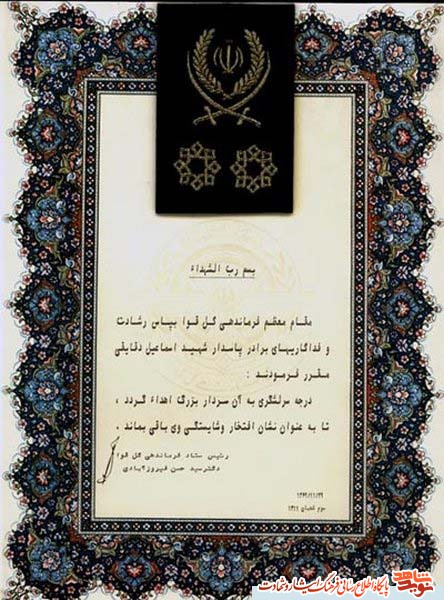 بسم رب الشهداء
مقام معظم فرماندهی کل قوا بپاس رشادت
و فداکاریهای برادر پاسدار شهید اسماعیل دقایقی
مقرر فرمودند :
درجه سرلشگری به آن سردار بزرگ اهداء گردد ،
تا به عنوان نشان افتخار وشایستگی وی باقی بماند .
رئیس ستاد فرماندهی کل قوا
دکترسید حسن فیروزآبادی
سوم شعبان ۱۴۱۱
نوید شاهد
پایگاه اطلاع رسانی فرهنگ ایثار و شهادت